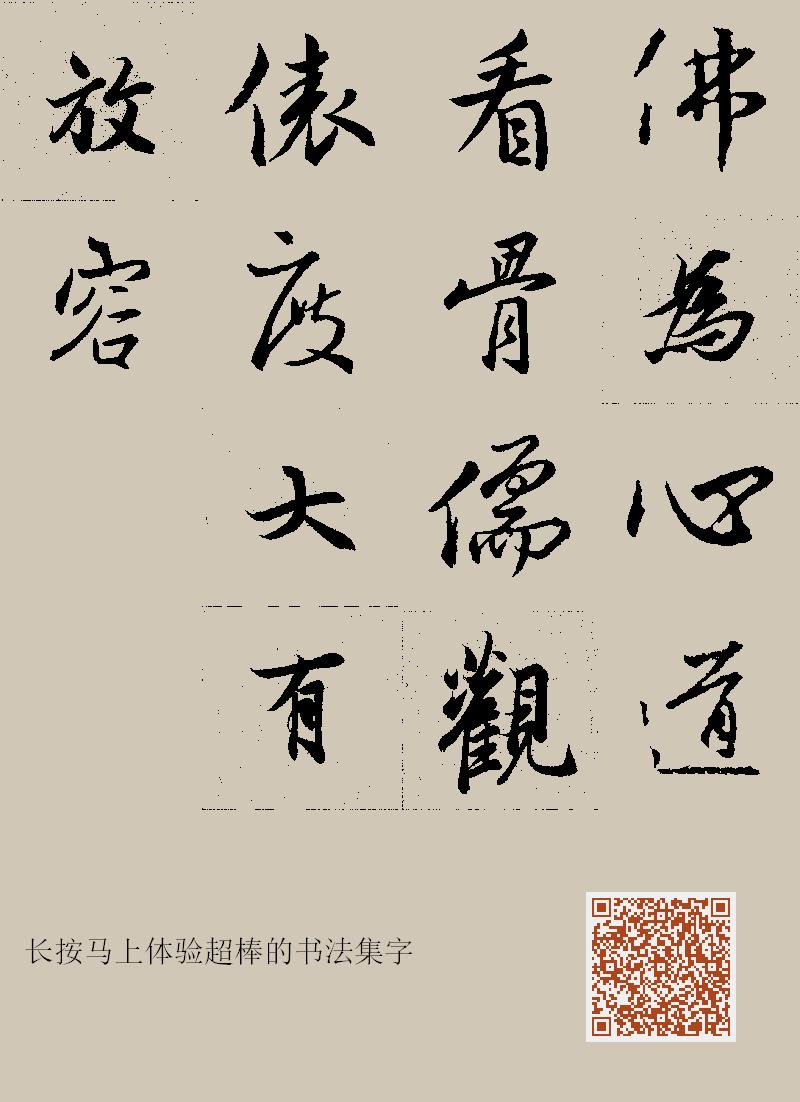 佛為心道
看骨儒觀
俵度大有
放容
长按马上体验超棒的书法集字